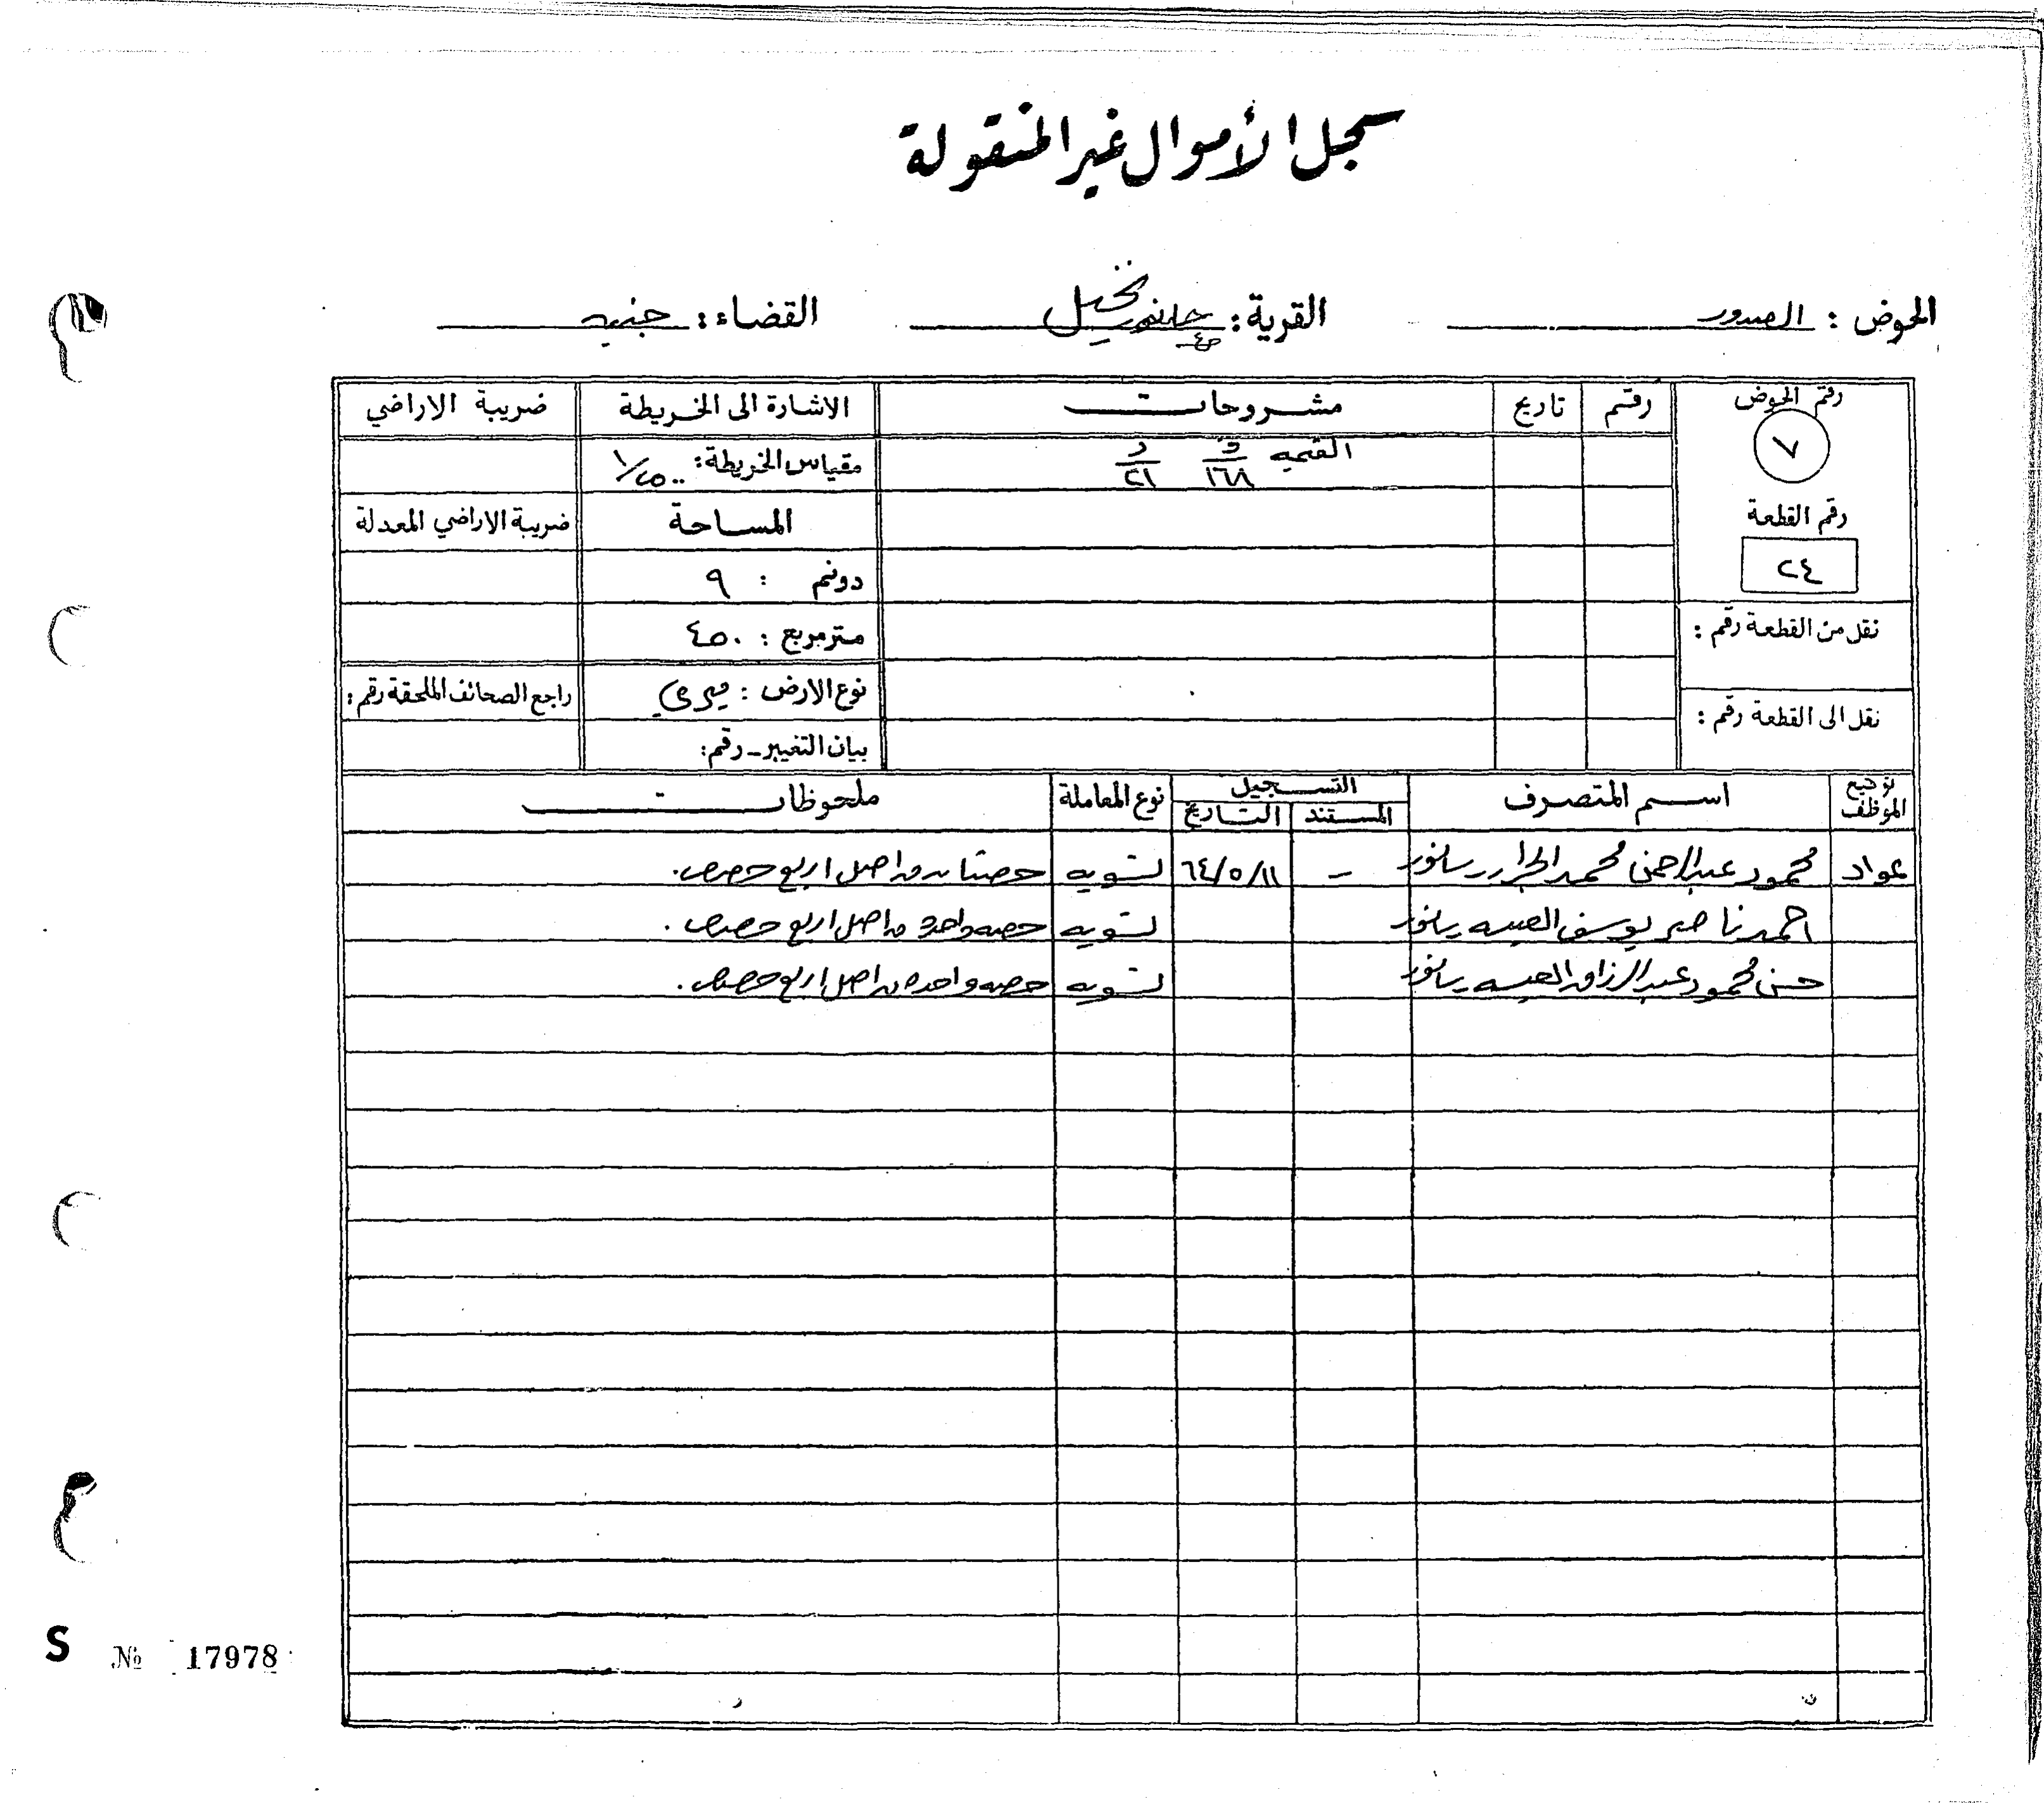 سجل الأموال غير المنقولة
الحوض : الصدور القرية : نخيل القضاء : جنين
رقم الحوض رقم تاريخ مشروحات الاشارة الى الخريطة ضريبة الاراضي
٧ القيمة ف/١٦٨ د/٢١ مقياس الخريطة: ١/٢٥٠٠
رقم القطعة المساحة ضريبة الاراضي المعدلة
٢٤ دونم : ٩
نقل من القطعة رقم : متر مربع : ٤٥٠
نوع الارض : ميري راجع الصحائف الملحقة رقم :
نقل الى القطعة رقم : بيان التغيير - رقم :
توقيع الموظف اسم المتصرف التسجيل المستند التاريخ نوع المعاملة ملحوظات
عواد محمود عبد الرحمن محمد الجرار سانور - ٦٤/٥/١١ تسويه حصتان من اصل اربع حصص.
احمد ناصر يوسف العيسه سانور تسويه حصه واحده من اصل اربع حصص.
حسن محمود عبد الرزاق العيسه سانور تسويه حصه واحده من اصل اربع حصص.
S № 17978